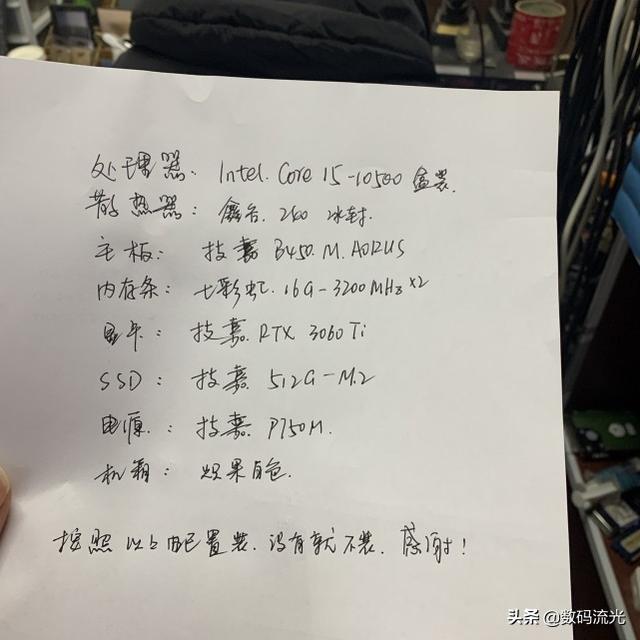 处理器: Intel. Core i5-10500 盒装.
散热器: 鑫谷 240 冰封.
主板: 技嘉 B450.M.AORUS
内存条: 七彩虹. 16G-3200MHz×2
显卡: 技嘉. RTX 3060Ti
SSD: 技嘉 512G-M.2
电源.: 技嘉. P750M.
机箱: 炽果白色.
按照以上配置装.没有就不装.感谢!
头条 @数码流光